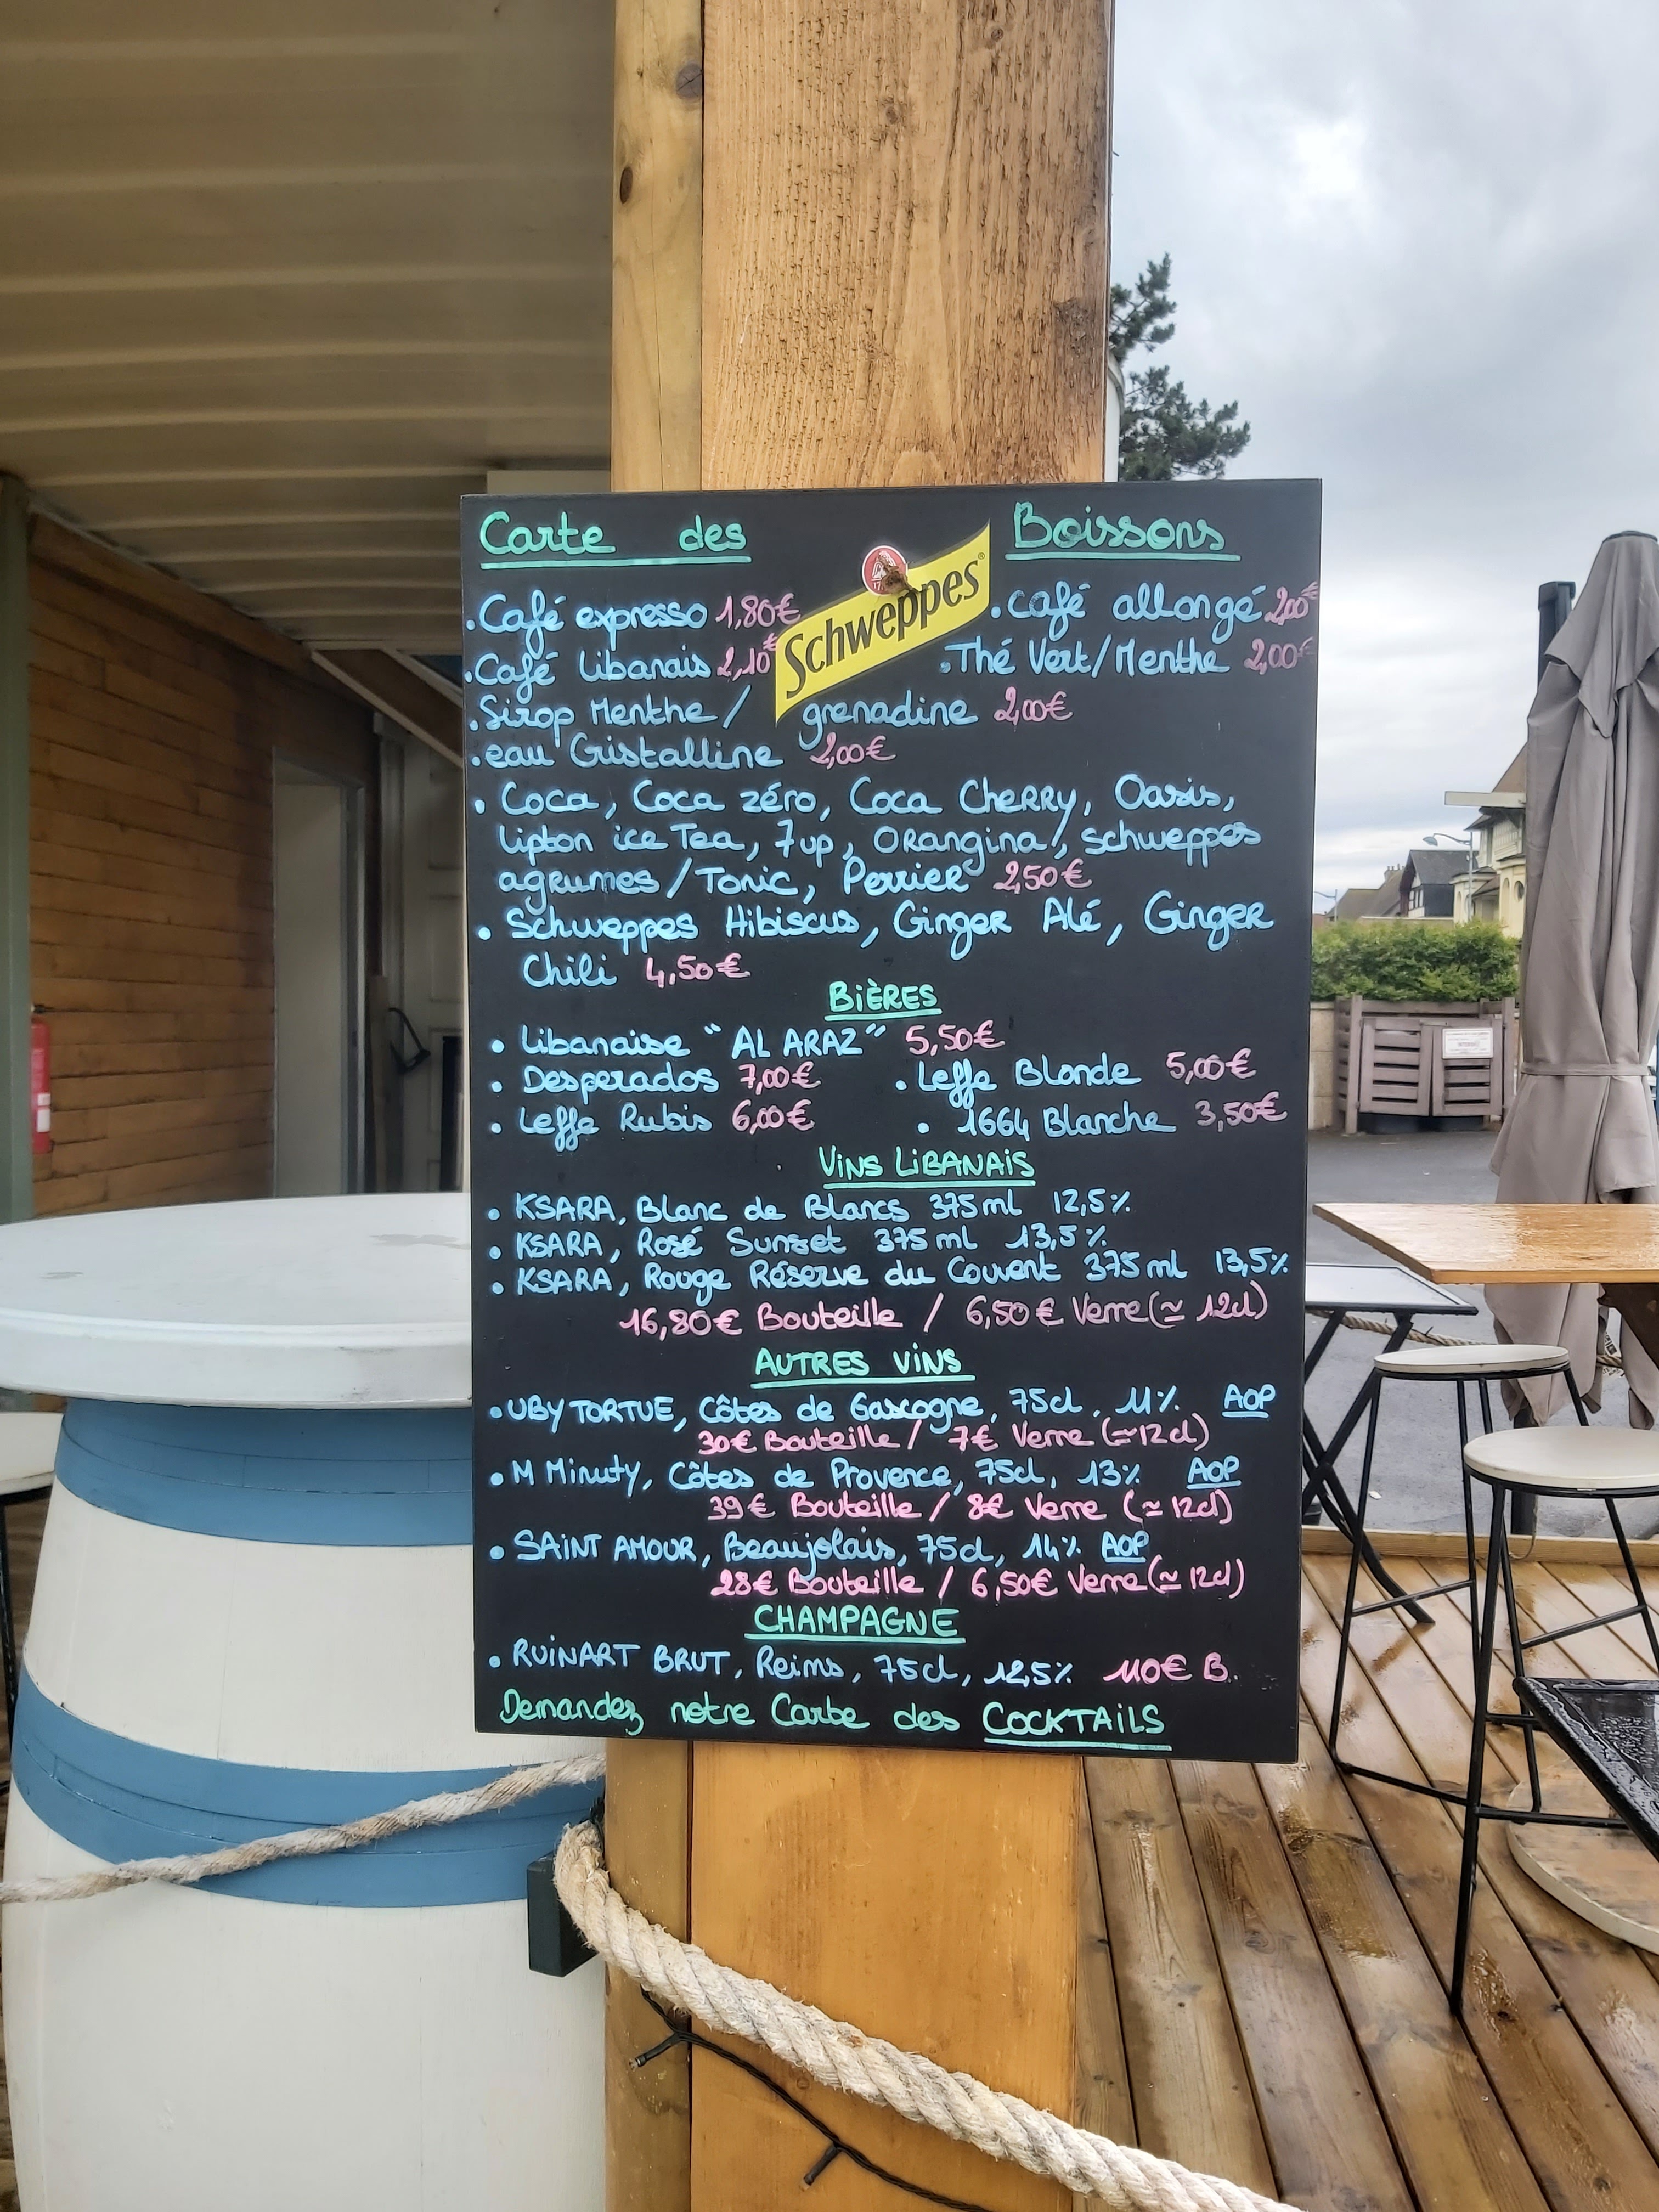 Carte des Boissons
Schweppes
• Café expresso 1,80€ • café allongé 2,00€
• Café Libanais 2,10€ • Thé Vert/Menthe 2,00€
• Sirop Menthe / grenadine 2,00€
• eau Cristalline 2,00€
• Coca, Coca zéro, Coca CheRRy, Oasis,
Lipton ice Tea, 7up, ORangina, schweppes
agrumes / Tonic, Perrier 2,50€
• Schweppes Hibiscus, Ginger Alé, Ginger
Chili 4,50€
BiÈRES
• Libanaise "AL ARAZ" 5,50€
• Desperados 7,00€ • Leffe Blonde 5,00€
• Leffe Rubis 6,00€ • 1664 Blanche 3,50€
ViNS LiBANAiS
• KSARA, Blanc de Blancs 375ml 12,5%
• KSARA, Rosé Sunset 375 ml 13,5%
• KSARA, Rouge Réserve du Couvent 375 ml 13,5%
16,80€ Bouteille / 6,50€ Verre (≃ 12cl)
AUTRES ViNS
• UBY TORTUE, Côtes de Gascogne, 75cl, 11% AOP
30€ Bouteille / 7€ Verre (≃ 12cl)
• M Minuty, Côtes de Provence, 75cl, 13% AOP
39€ Bouteille / 8€ Verre (≃ 12cl)
• SAiNT AMOUR, Beaujolais, 75cl, 14% AOP
28€ Bouteille / 6,50€ Verre (≃ 12cl)
CHAMPAGNE
• RUiNART BRUT, Reims, 75cl, 12,5% 110€ B.
Demandez notre Carte des COCKTAiLS